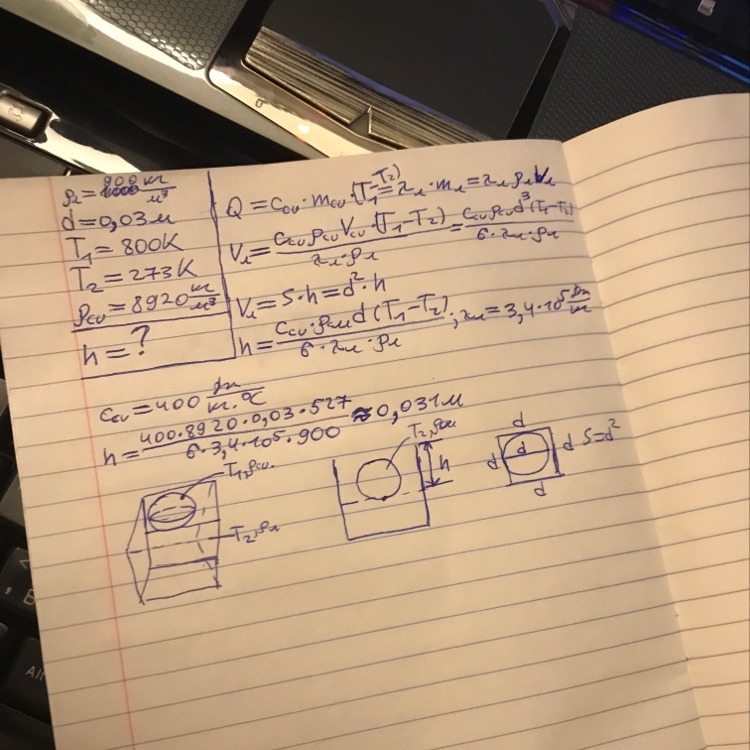 ρл = 900 кг/м³
d = 0,03 м
T₁ = 800K
T₂ = 273K
ρcu = 8920 кг/м³
h = ?
Q = Ccu · mcu · (T₁ - T₂) = λл · mл = λл ρл Vл
Vл = Ccu ρcu Vcu · (T₁ - T₂) / λл · ρл = Ccu ρcu d³ (T₁ - T₂) / 6 · λл · ρл
Vл = S · h = d² · h
h = Ccu · ρcu d (T₁ - T₂) / 6 · λл · ρл ; λл = 3,4 · 10⁵ Дж/кг
Ccu = 400 Дж/кг·°C
h = 400 · 8920 · 0,03 · 527 / 6 · 3,4 · 10⁵ · 900 ≈ 0,031 м
T₁, ρcu
T₂, ρл
T₂, ρcu
h
d
d
d
d
d
S = d²
Alt